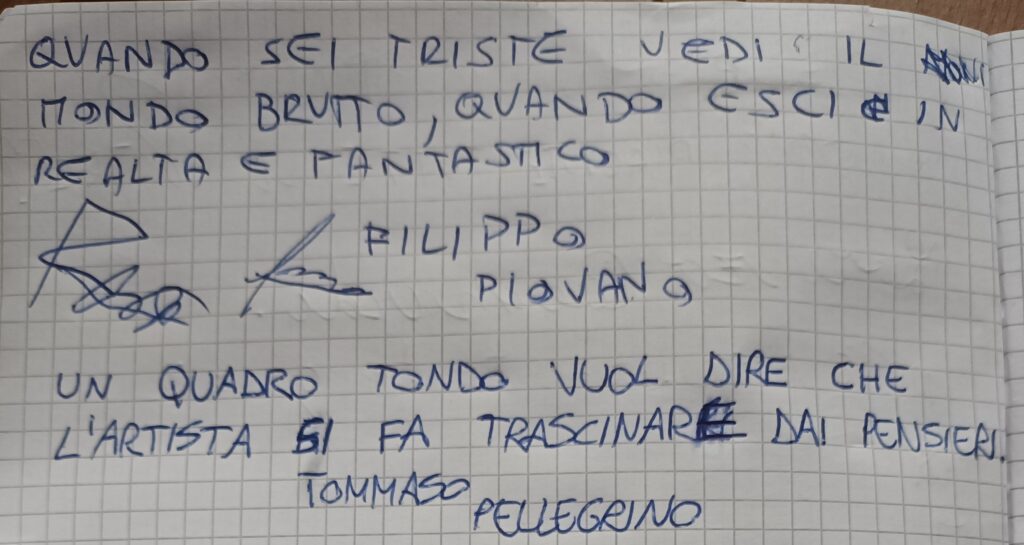 QUANDO SEI TRISTE VEDI IL
MONDO BRUTTO, QUANDO ESCI E IN
REALTA E FANTASTICO
FILIPPO
PIOVANO
UN QUADRO TONDO VUOL DIRE CHE
L'ARTISTA SI FA TRASCINARE DAI PENSIERI.
TOMMASO
PELLEGRINO